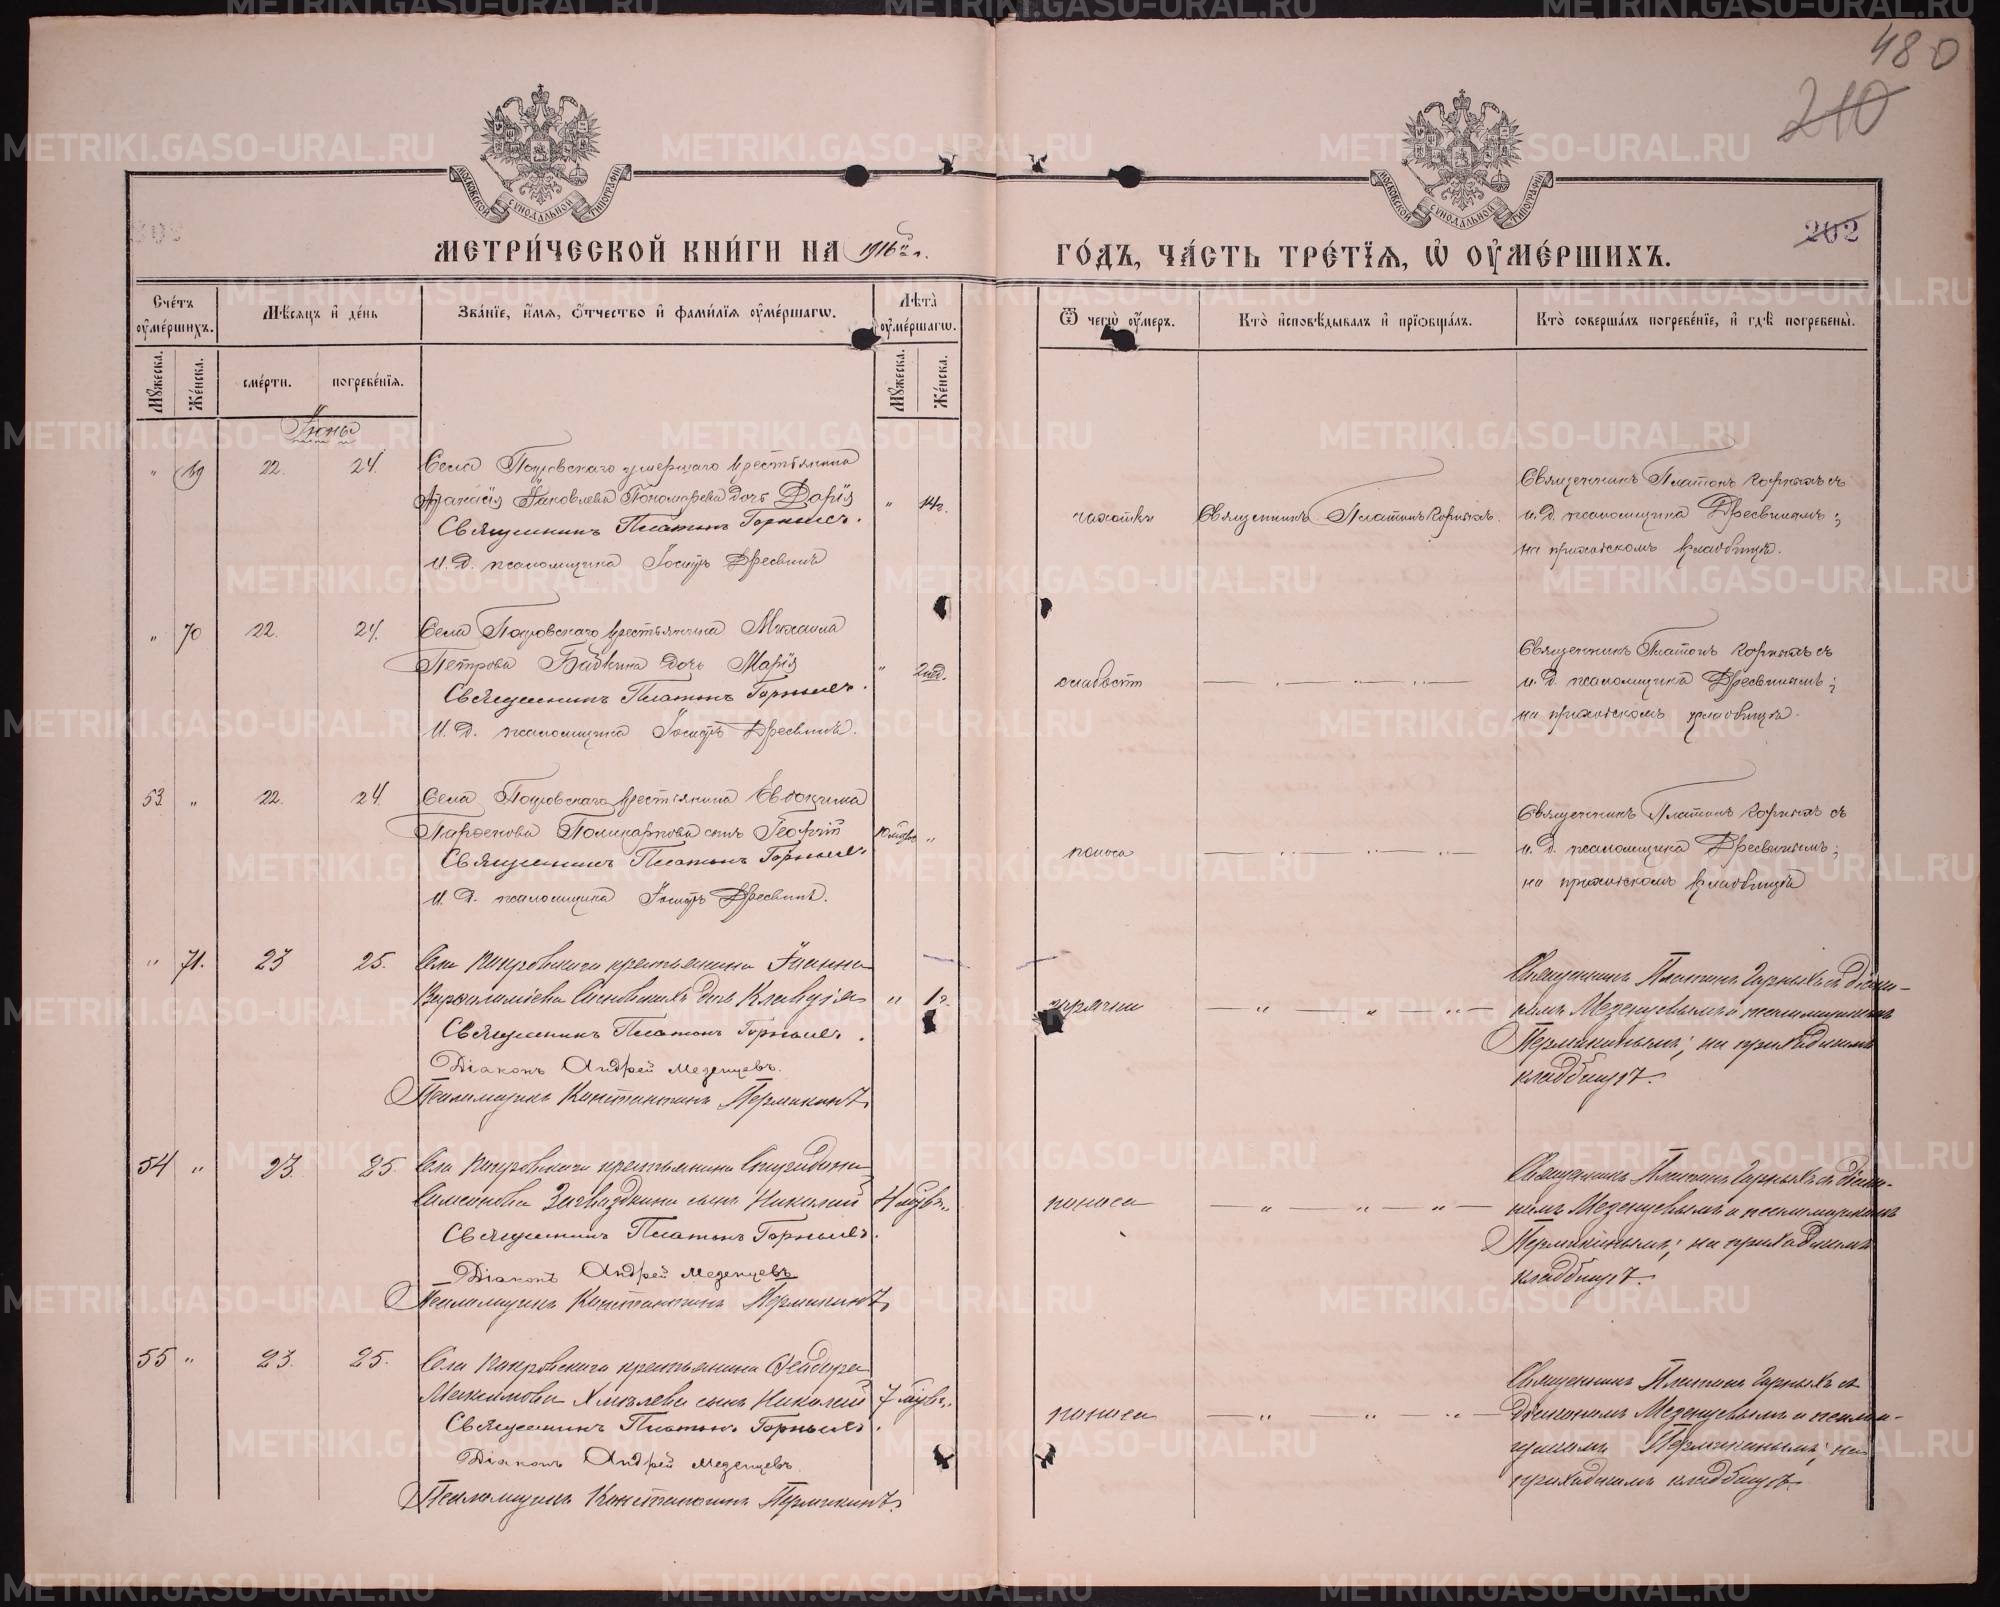 480
210
202
МОСКОВСКОЙ СѴНОДАЛЬНОЙ ТИПОГРАФІИ
МОСКОВСКОЙ СѴНОДАЛЬНОЙ ТИПОГРАФІИ
МЕТРИ́ЧЕСКОЙ КНИ́ГИ НА 1916 г.
ГО́ДЪ, ЧА́СТЬ ТРЕ́ТЇѦ, Ѡ҆ ОУ҆МЕ́РШИХЪ.
Сче́тъ оу҆ме́ршихъ.
Мѣ́сѧцъ и҆ де́нь
Зва́нїе, и҆́мѧ, ѻ҆́тчество и҆ фами́лїѧ оу҆ме́ршагѡ.
Лѣ́та оу҆ме́ршагѡ.
Ѿ чегѡ̀ оу҆́меръ.
Кто̀ и҆сповѣ́дывалъ и҆ прїѡбща́лъ.
Кто̀ соверша́лъ погребе́нїе, и҆ гдѣ̀ погребены̀.
Мꙋ́жеска.
Же́нска.
сме́рти.
погребе́нїѧ.
Мꙋ́жеска.
Же́нска.
Іюнь
" 69 22. 24. Села Покровскаго умершаго крестьянина
Аѳанасія Яковлева Пономарева дочь Дарія " 14 г.
Священникъ Платонъ Горныхъ.
И. д. псаломщика Іосифъ Дресвинъ
чахотки
Священникъ Платонъ Горныхъ.
Священникъ Платонъ Горныхъ съ
и. д. псаломщика Дресвинымъ;
на приходскомъ кладбищѣ.
" 70 22. 24. Села Покровскаго крестьянина Михаила
Петрова Бабкина дочь Марія " 2 нед.
Священникъ Платонъ Горныхъ.
И. д. псаломщика Іосифъ Дресвинъ.
слабости
— " — " — " —
Священникъ Платонъ Горныхъ съ
и. д. псаломщика Дресвинымъ;
на приходскомъ кладбищѣ.
53 " 22. 24. Села Покровскаго крестьянина Евдокима
Парѳенова Поликарпова сынъ Георгій 10 мѣсяц. "
Священникъ Платонъ Горныхъ.
И. д. псаломщика Іосифъ Дресвинъ.
поноса
— " — " — " —
Священникъ Платонъ Горныхъ съ
и. д. псаломщика Дресвинымъ;
на приходскомъ кладбищѣ
" 71. 23 25. Села Покровскаго крестьянина Іоанна
Варѳоломѣева Сосновскихъ дочь Клавдія " 1 г.
Священникъ Платонъ Горныхъ.
Діаконъ Андрей Мезенцевъ.
Псаломщикъ Константинъ Пермикинъ.
горячки
— " — " — " —
Священникъ Платонъ Горныхъ съ діако-
номъ Мезенцевымъ и псаломщикомъ
Пермикинымъ; на приходскомъ
кладбищѣ.
54 " 23. 25. Села Покровскаго крестьянина Спиридона
Симеонова Загвоздкина сынъ Николай 4 мѣсяц. "
Священникъ Платонъ Горныхъ.
Діаконъ Андрей Мезенцевъ
Псаломщикъ Константинъ Пермикинъ.
поноса
— " — " — " —
Священникъ Платонъ Горныхъ съ діако-
номъ Мезенцевымъ и псаломщикомъ
Пермикинымъ; на приходскомъ
кладбищѣ.
55 " 23. 25. Села Покровскаго крестьянина Ѳеодора
Максимова Хмѣлева сынъ Николай 7 мѣсяц. "
Священникъ Платонъ Горныхъ.
Діаконъ Андрей Мезенцевъ.
Псаломщикъ Константинъ Пермикинъ.
поноса
— " — " — " —
Священникъ Платонъ Горныхъ съ
діакономъ Мезенцевымъ и псалом-
щикомъ Пермикинымъ; на
приходскомъ кладбищѣ.
METRIKI.GASO-URAL.RU